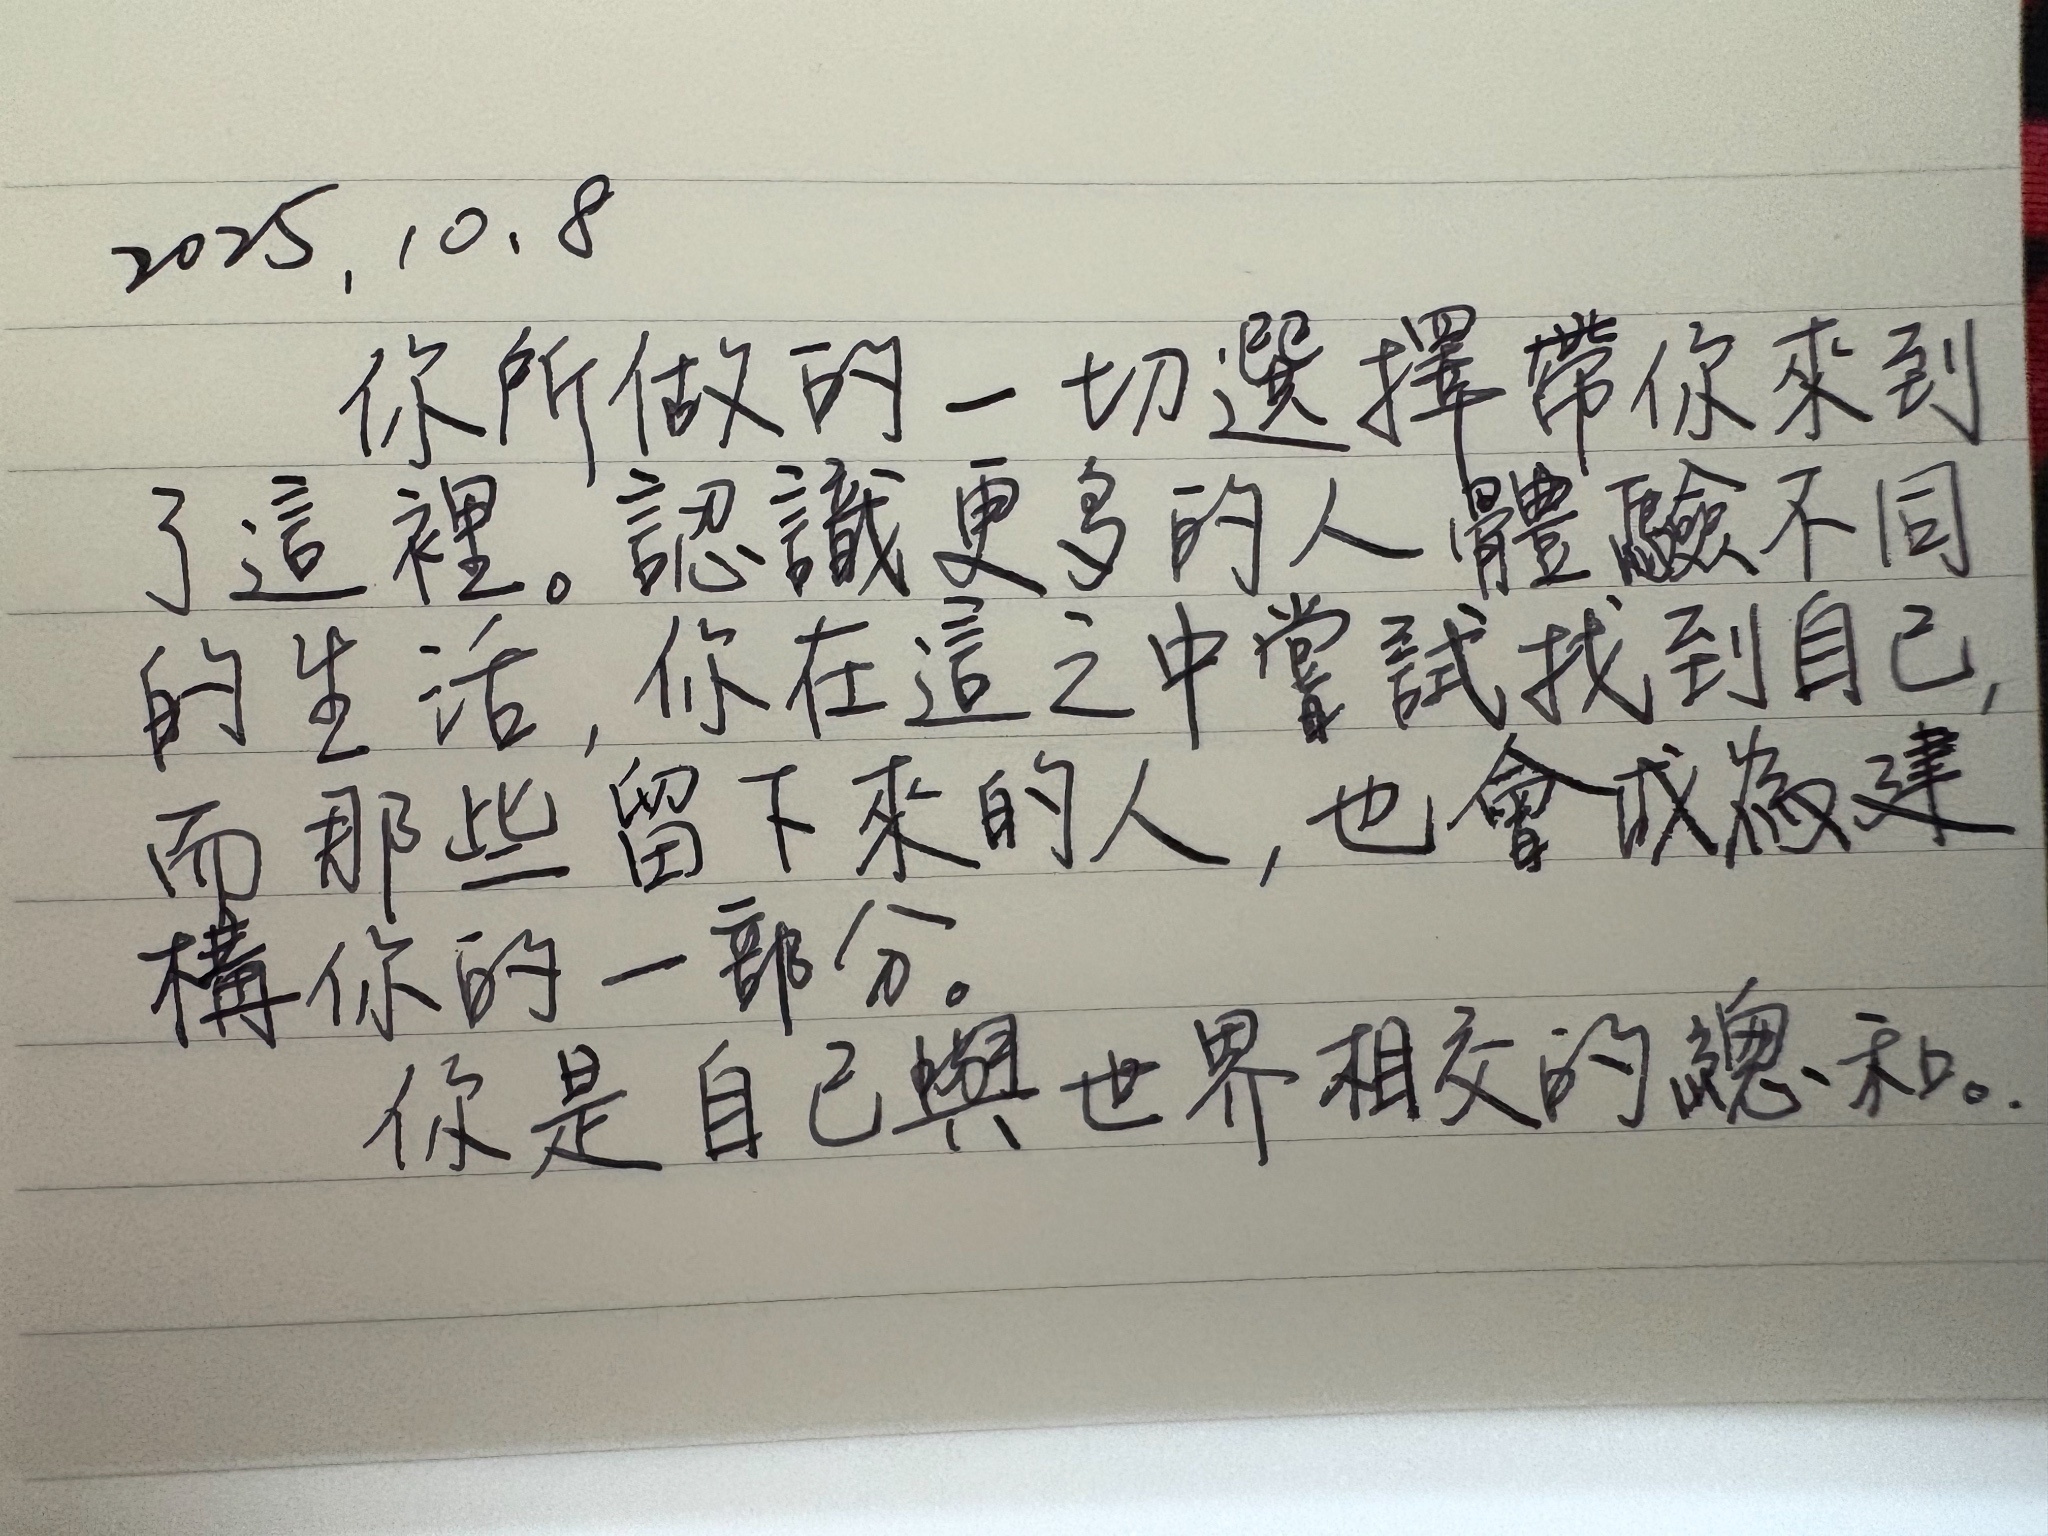 2025.10.8
你所做的一切選擇帶你來到
了這裡。認識更多的人體驗不同
的生活,你在這之中嘗試找到自己,
而那些留下來的人,也會成為建
構你的一部分。
你是自己與世界相交的總和。.